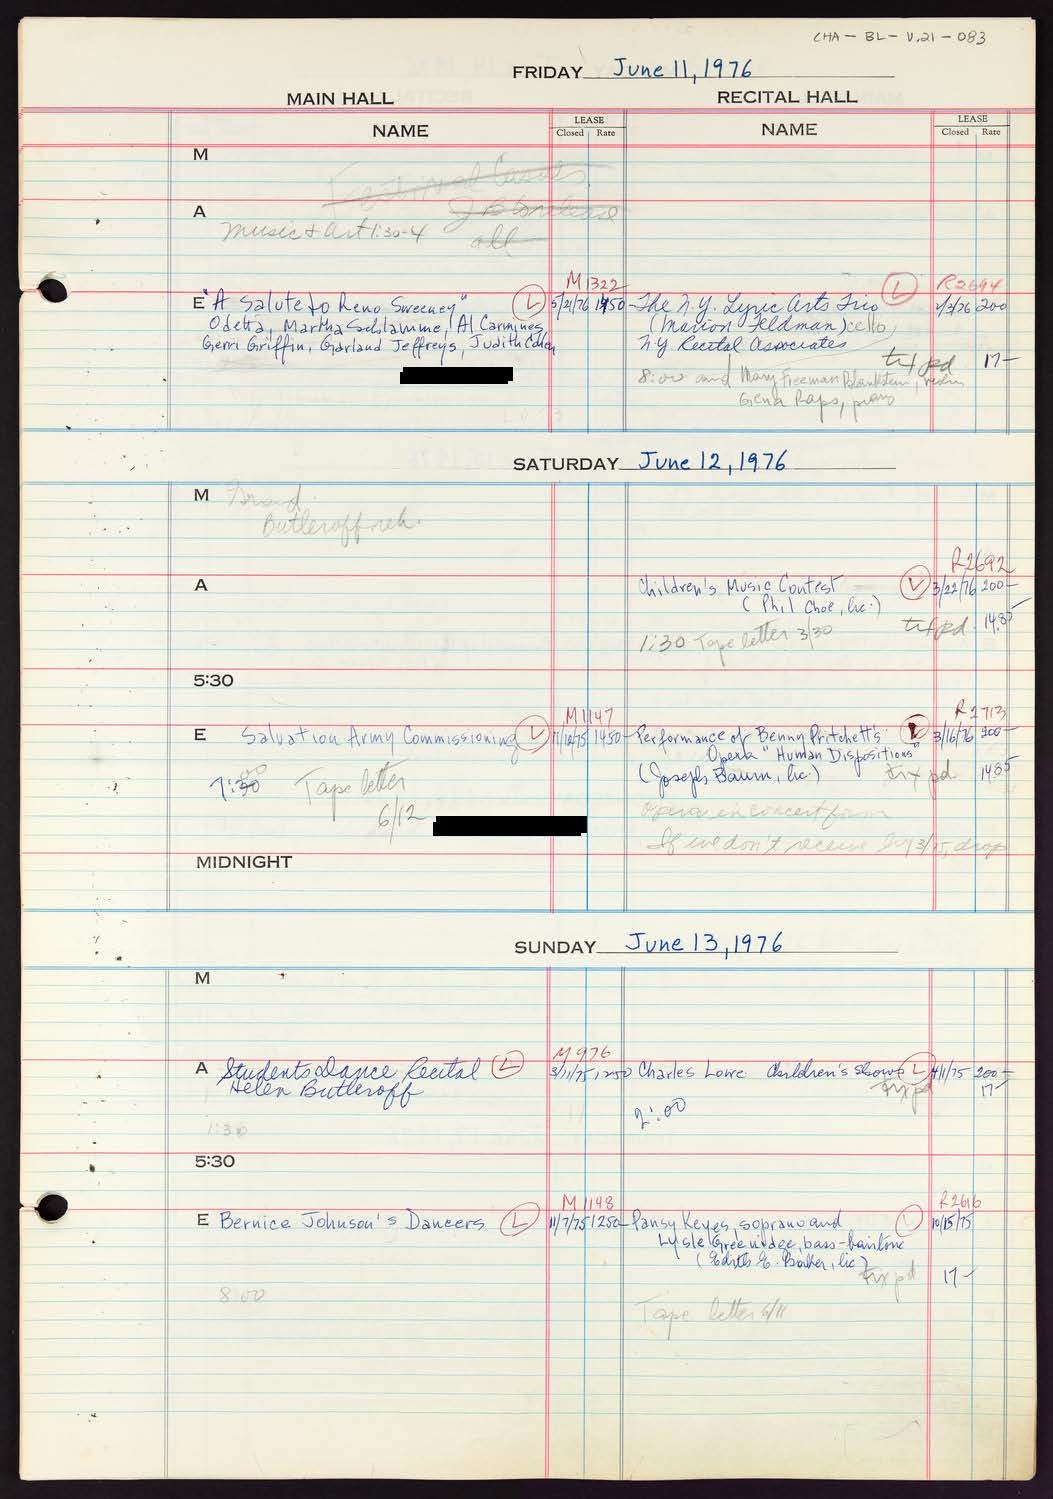 CHA - BL - V.21 - 083
FRIDAY June 11, 1976
MAIN HALL
RECITAL HALL
NAME
LEASE
Closed Rate
NAME
LEASE
Closed Rate
M
Festival Casals
A
Music & Art 1:30-4
all
M1322
E "A Salute to Reno Sweeney" L 5/21/76 1450-
Odetta, Martha Schlamme, Al Carmines,
Gerri Griffin, Garland Jeffreys, Judith Cohen
R2694
The N.Y. Lyric Arts Trio L 2/3/76 200
(Marion Feldman) cello,
NY Recital Associates
txf pd 17-
8:00 and Mary Freeman Blankstein, violin
Gena Raps, piano
SATURDAY June 12, 1976
M
Butleroff reh.
R2692
A
Children's Music Contest L 3/22/76 200-
(Phil Choe, lic.)
1:30 Tape letter 3/30 txf pd. 14.85
5:30
M1147
E Salvation Army Commissioning L 11/10/75 1450-
7:30 00 Tape letter
6/12
R2713
Performance of Benny Pritchett's L 3/16/76 200-
Opera "Human Dispositions"
(Joseph Baum, lic.) tix pd 14.85
Opera in concert form
If we don't receive by 3/15, drop
MIDNIGHT
SUNDAY June 13, 1976
M
M976
A Students Dance Recital L 3/11/75 1250
Helen Butleroff
1:30
Charles Lowe Children's Shows L 4/1/75 200-
tix pd 17-
2:00
5:30
M1148
E Bernice Johnson's Dancers L 11/7/75 1250-
8:00
R2616
Pansy Keyes, soprano and L 10/15/75
Lysle Greenidge, bass-baritone
(Edith E. Barker, lic) tix pd 17-
Tape letter 6/11